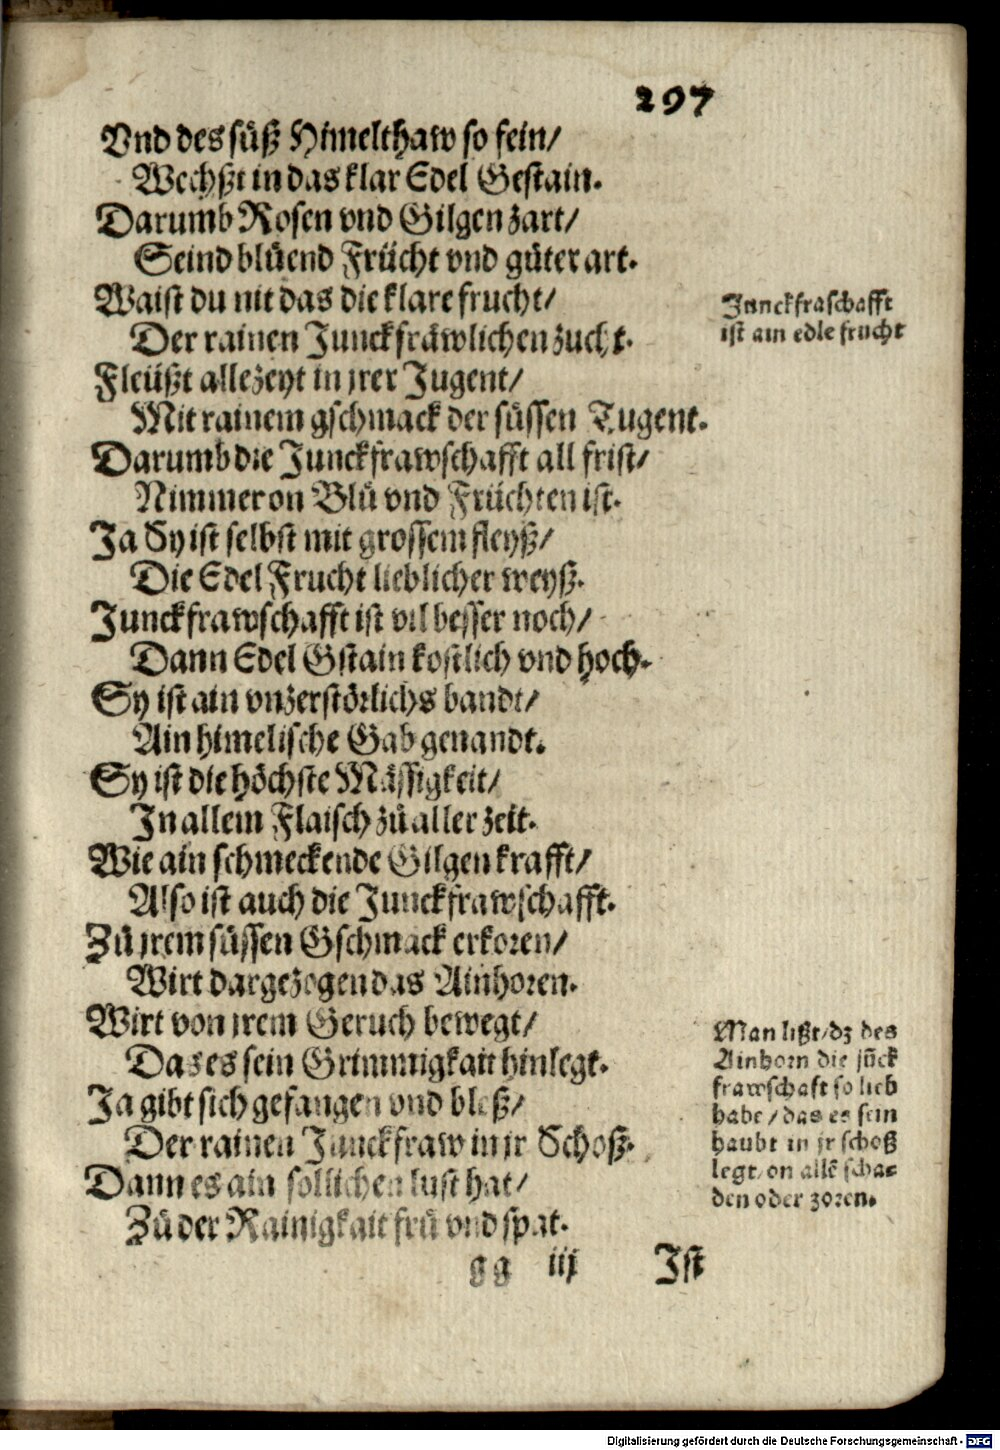 297
Vnd des süß Himelthaw so fein/
Wechßt in das klar Edel Gestain.
Darumb Rosen vnd Gilgen zart/
Seind blüend Frücht vnd güter art.
Waist du nit das die klare frucht/
Der rainen Junckfräwlichen zucht.
Fleüßt allezeyt in jrer Jugent/
Mit rainem gschmack der süssen Tugent.
Darumb die Junckfrawschafft all frist/
Nimmer on Blü vnd Früchten ist.
Ja Sy ist selbst mit grossem fleyß/
Die Edel Frucht lieblicher weyß.
Junckfrawschafft ist vil besser noch/
Dann Edel Gstain kostlich vnd hoch.
Sy ist ain vnzerstörlichs bandt/
Ain himelische Gab genandt.
Sy ist die höchste Mässigkeit/
In allem Flaisch zů aller zeit.
Wie ain schmeckende Gilgen krafft/
Also ist auch die Junckfrawschafft.
Zů jrem süssen Gschmack erkoren/
Wirt dargezogen das Ainhoren.
Wirt von jrem Geruch bewegt/
Das es sein Grimmigkait hinlegt.
Ja gibt sich gefangen vnd bloß/
Der rainen Junckfraw in jr Schoß.
Dann es ain sollichen lust hat/
Zů der Rainigkait frü vnd spat.
gg iij Ist
Junckfraschafft
ist ain edle frucht
Man lißt/dz des
Ainhorn die jūck
frawschaft so lieb
habe/das es sein
haubt in jr schoß
legt/on allē scha=
den oder zoren.
Digitalisierung gefördert durch die Deutsche Forschungsgemeinschaft - DFG